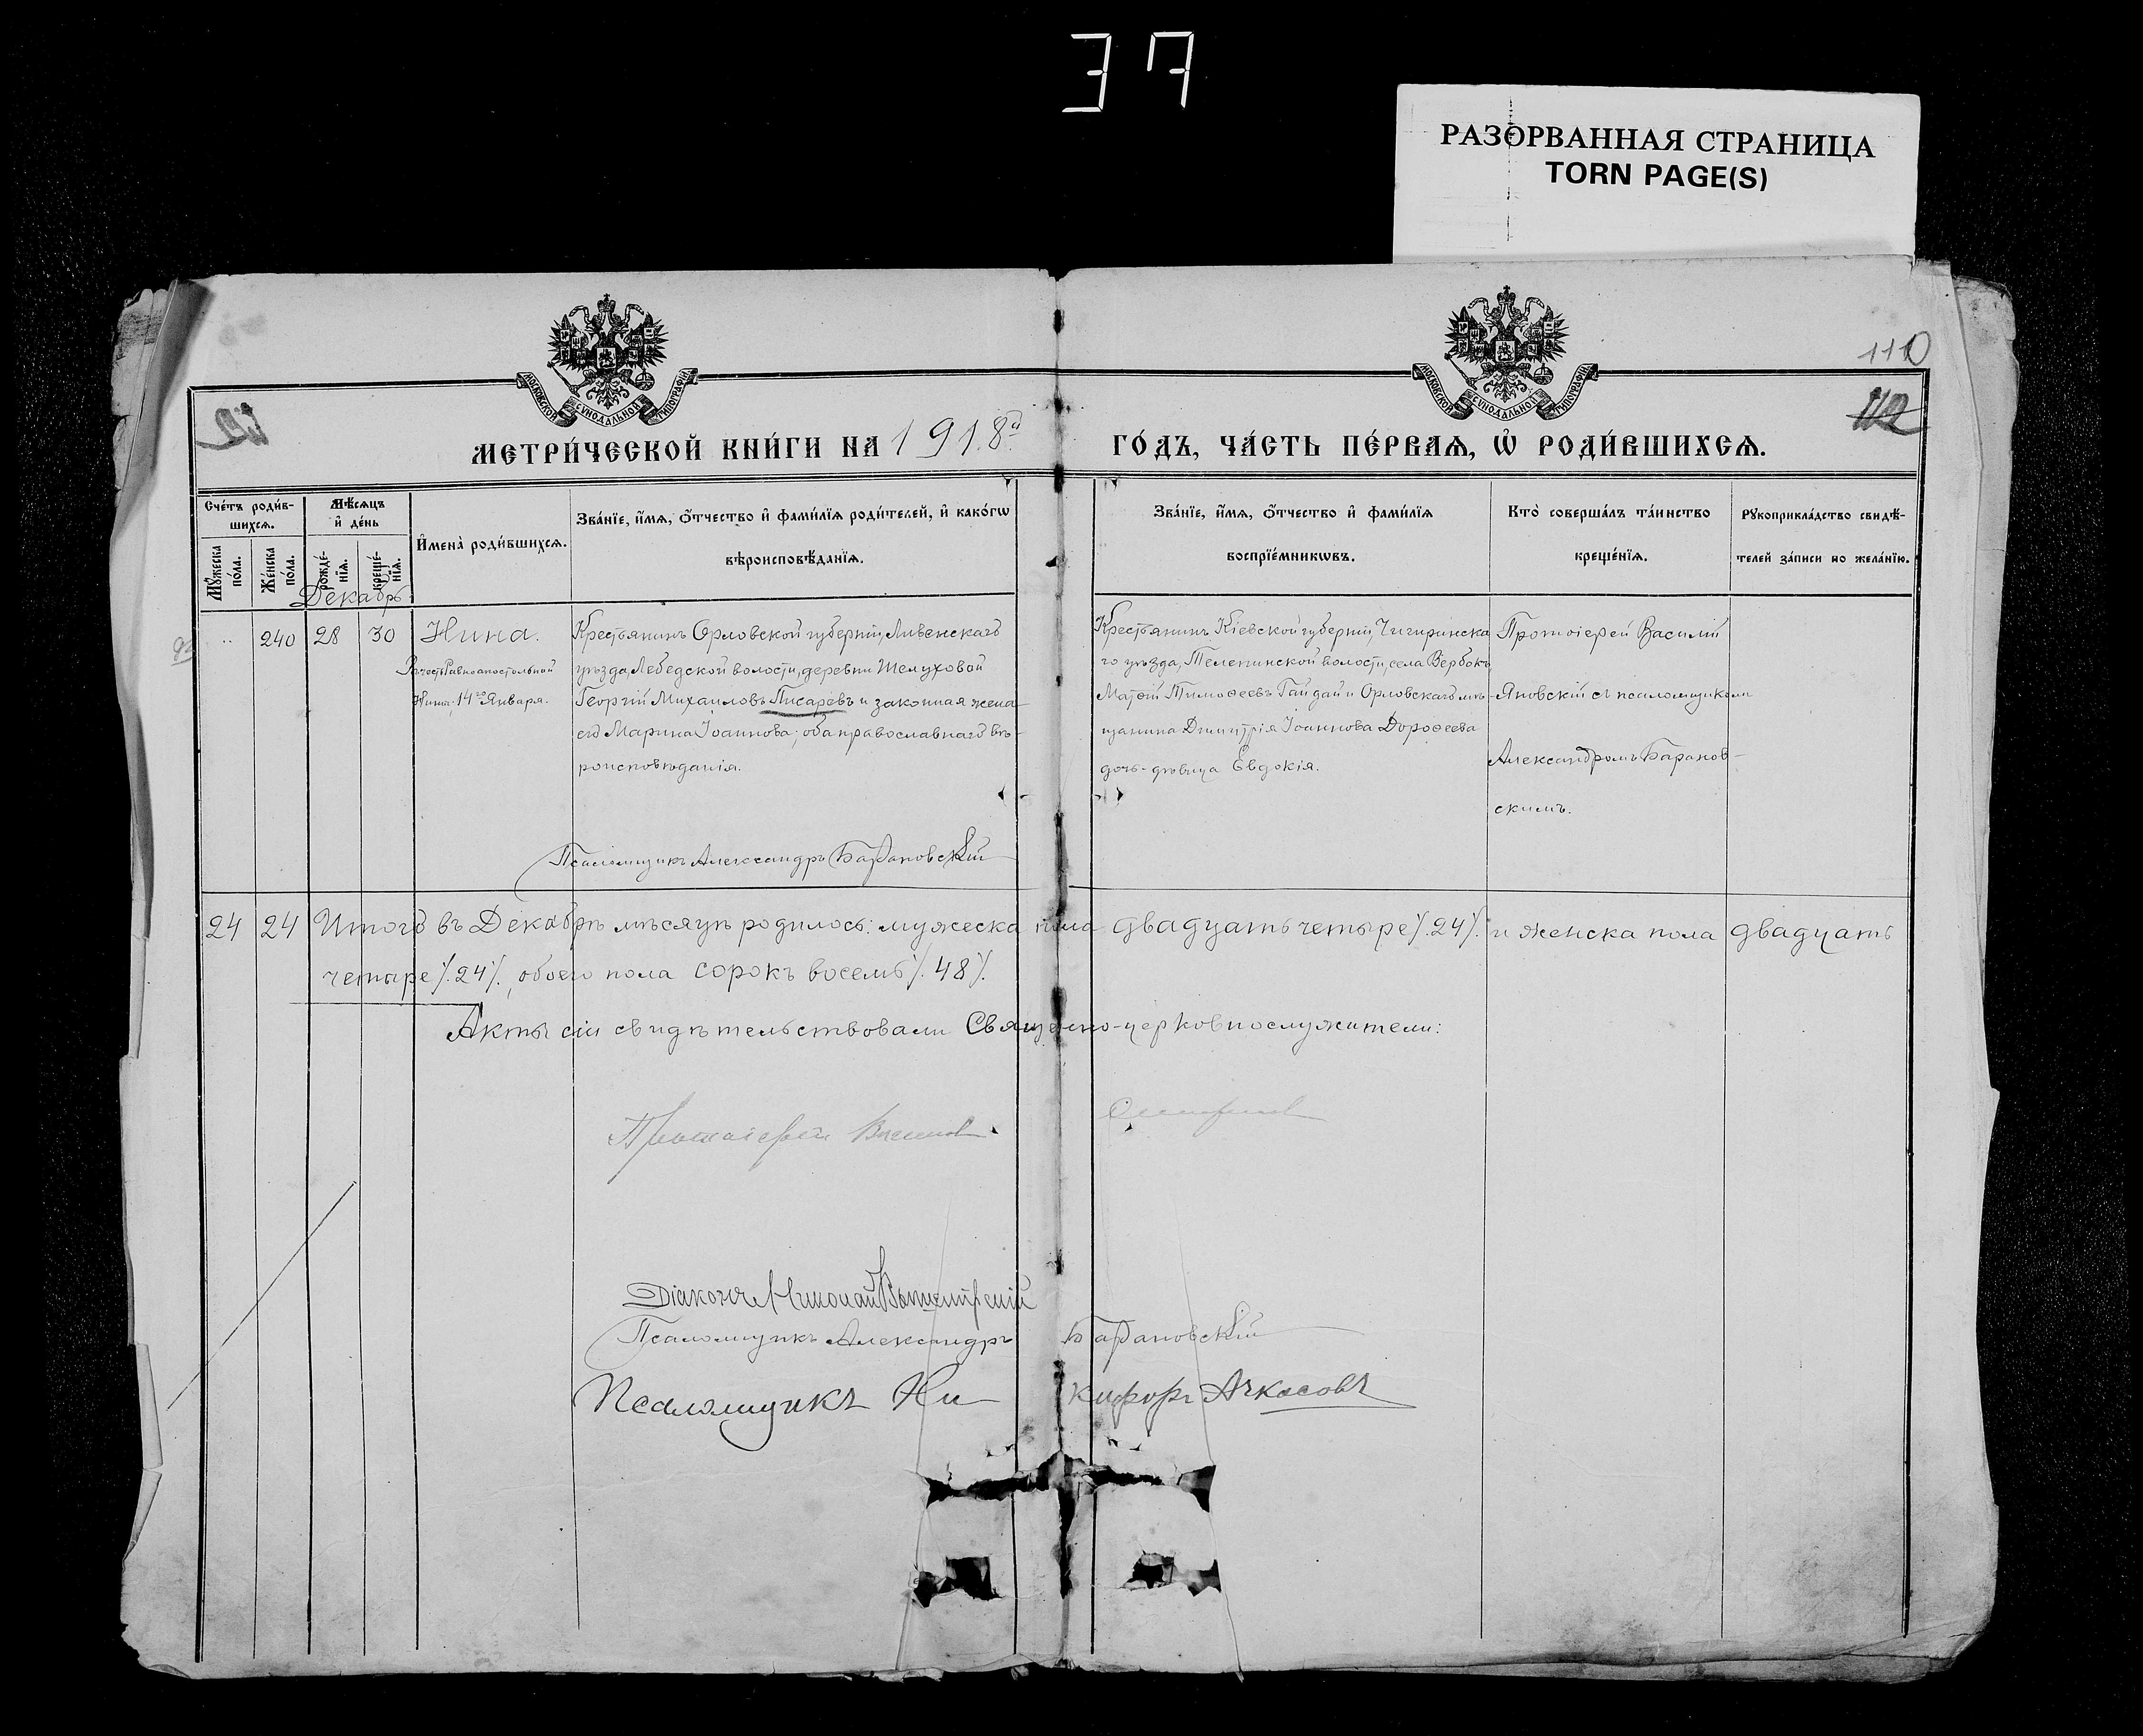 37
РАЗОРВАННАЯ СТРАНИЦА
TORN PAGE(S)
110
112
МОСКОВСКОЙ СѴНОДАЛЬНОЙ ТИПОГРАФІИ
МОСКОВСКОЙ СѴНОДАЛЬНОЙ ТИПОГРАФІИ
МЕТРИ́ЧЕСКОЙ КНИ́ГИ НА 1918й ГО́ДЪ, ЧА́СТЬ ПЕ́РВАѦ, Ѡ҆ РОДИ́ВШИХСѦ.
Сче́тъ роди́в-
шихсѧ.
Мꙋ́жеска по́ла.
Же́нска по́ла.
Мѣ́сѧцъ
и҆ де́нь
рожде́-
нїѧ.
креще́-
нїѧ.
И҆мена̀ роди́вшихсѧ.
Зва́нїе, и҆́мѧ, о҆́тчество и҆ фами́лїѧ роди́телей, и҆ како́гѡ
вѣроисповѣ́данїѧ.
Зва́нїе, и҆́мѧ, о҆́тчество и҆ фами́лїѧ
воспрїе́мникѡвъ.
Кто̀ соверша́лъ та́инство
креще́нїѧ.
Рꙋкоприкла́дство свидѣ́-
телей за́писи по жела́нїю.
Декабрь
240 28 30 Нина.
Въ честь Равноапостольной
Нины, 14го Января.
Крестьянинъ Орловской губерніи, Ливенскаго
уѣзда, Лебедской волости, деревни Шелуховой
Георгій Михаиловъ Писаревъ и законная жена
его Марина Іоаннова; оба православнаго вѣ-
роисповѣданія.
Крестьянинъ Кіевской губерніи, Чигиринска
го уѣзда, Телепинской волости, села Вербокъ
Матѳій Тимоѳеевъ Гайдай и Орловскаго мѣ-
щанина Димитрія Іоаннова Дороѳеева
дочь-дѣвица Евдокія.
Протоіерей Василій
Яновскій съ псаломщикомъ
Александромъ Баранов-
скимъ.
Псаломщикъ Александръ Барановскій
24 24 Итого въ Декабрѣ мѣсяцѣ родилось: мужеска пола двадцать четыре /.24/. и женска пола двадцать
четыре /.24/., обоего пола сорокъ восемь /.48/.
Акты сіи свидѣтельствовали Священно-церковнослужители:
Протоіерей Василій
Діаконъ Николай
Псаломщикъ Александръ Барановскій
Псаломщикъ Никифоръ Ачкасовъ